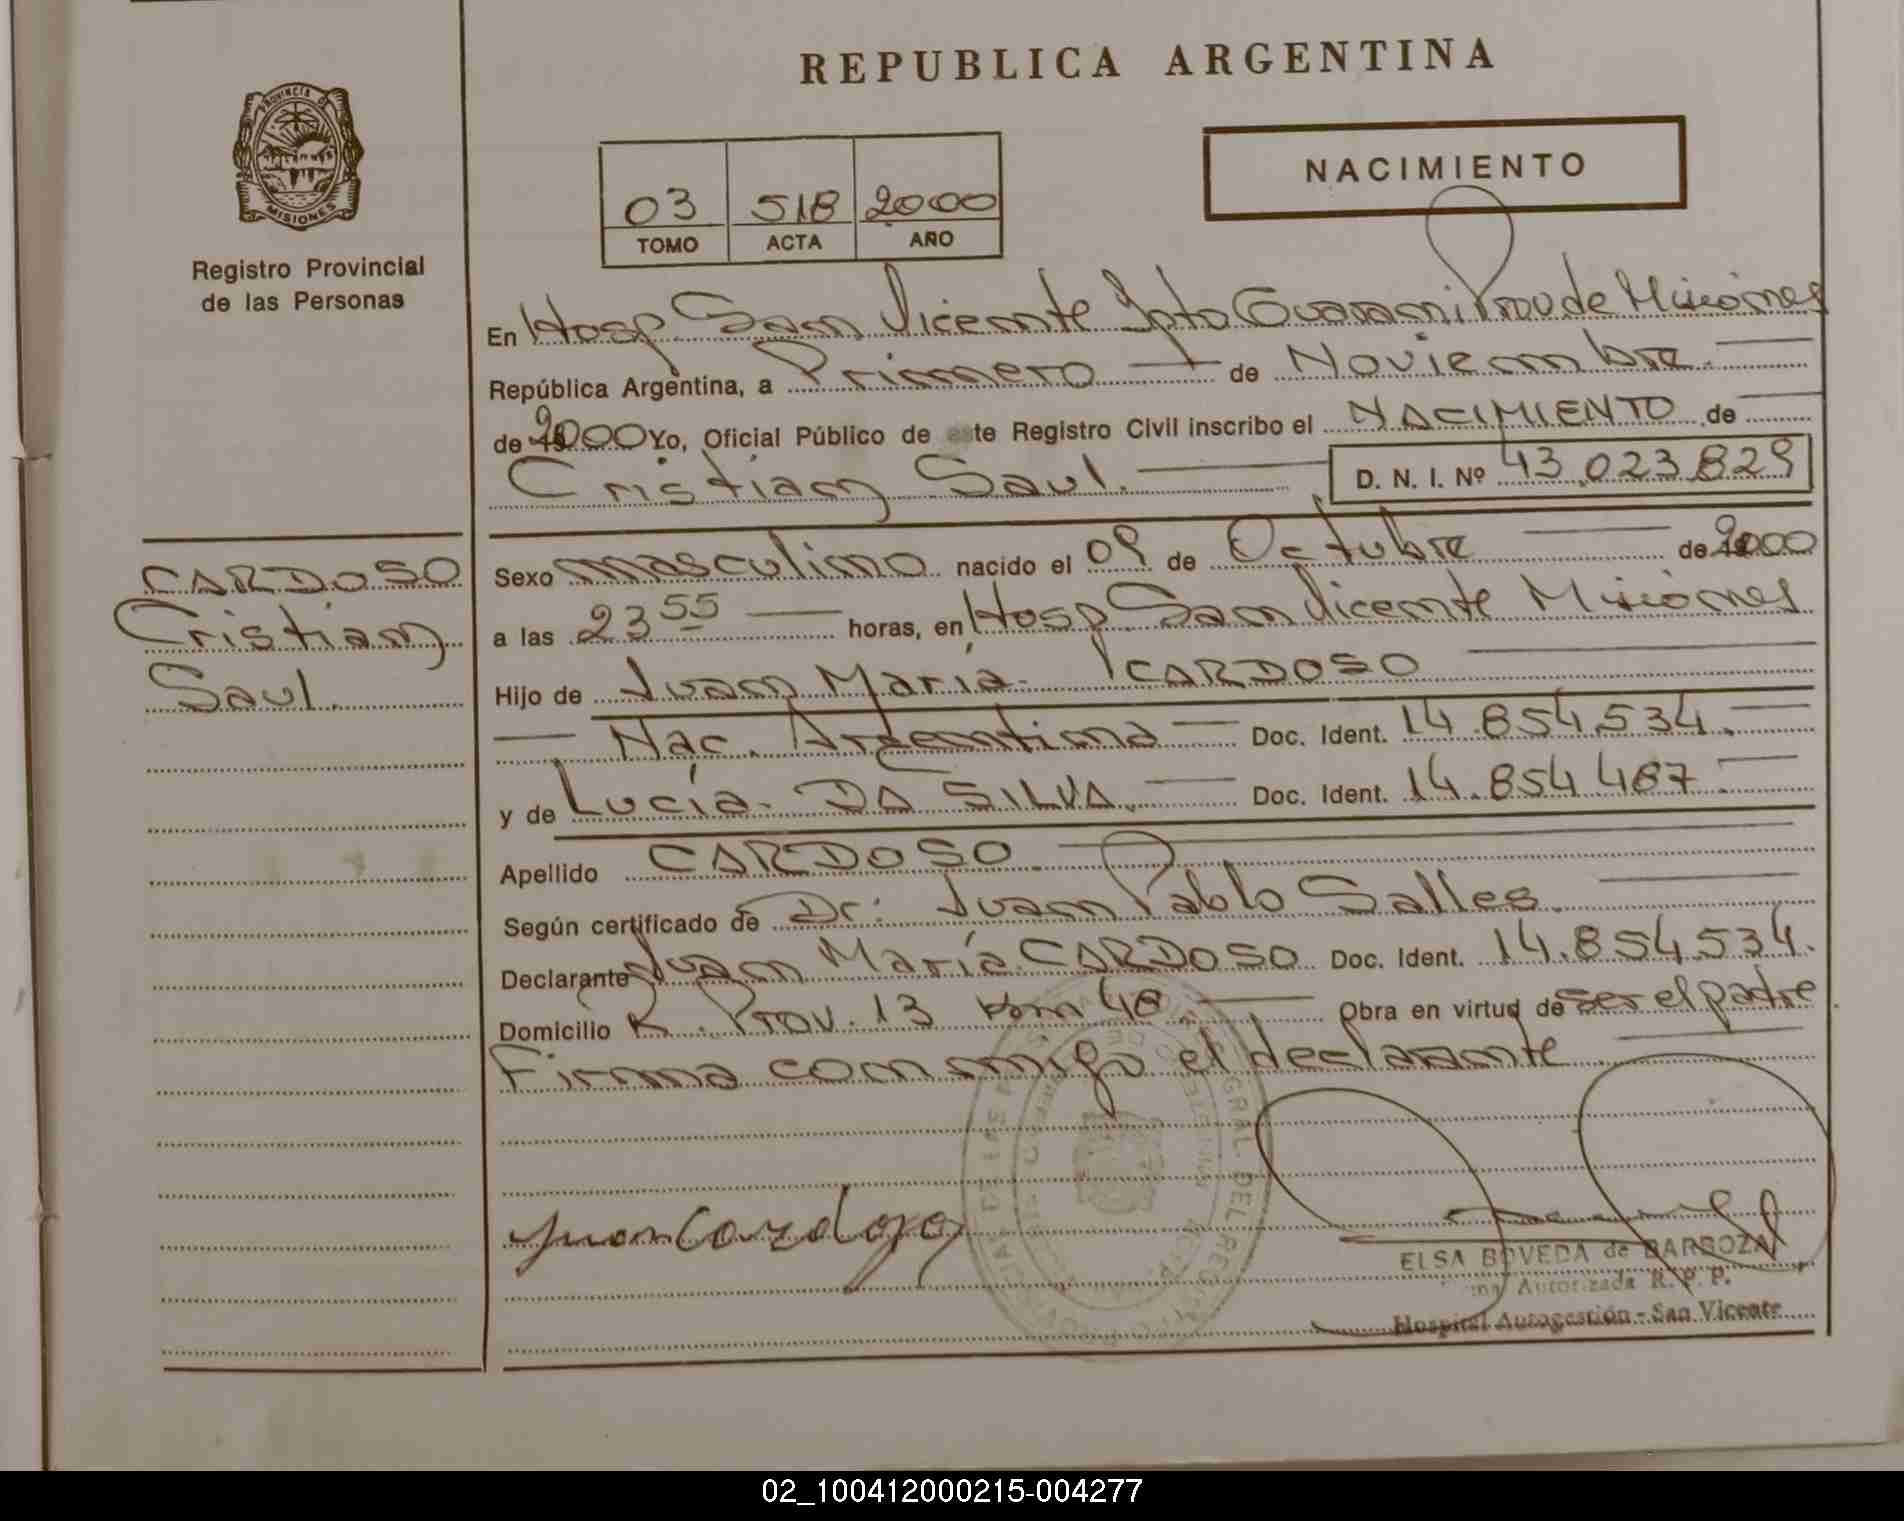 REPUBLICA ARGENTINA
PROVINCIA DE
MISIONES
Registro Provincial
de las Personas
NACIMIENTO
03 518 2000
TOMO ACTA AÑO
En Hosp. San Vicente Dpto Guarani Prov de Misiones
República Argentina, a Primero de Noviembre
de 2000 Yo, Oficial Público de este Registro Civil inscribo el NACIMIENTO de
Cristian Saul. D. N. I. Nº 43.023.829
CARDOSO
Cristian
Saul.
Sexo masculino nacido el 09 de Octubre de 2000
a las 23 55 horas, en Hosp San Vicente Misiones
Hijo de Juan María CARDOSO
Nac. Argentina Doc. Ident. 14.854.534.
y de Lucía DA SILVA. Doc. Ident. 14.854.487.
Apellido CARDOSO
Según certificado de Dr. Juan Pablo Salles.
Declarante Juan María CARDOSO Doc. Ident. 14.854.534.
Domicilio R. Prov. 13 Km 48 Obra en virtud de ser el padre
Firma conmigo el declarante
Juan Cardozo
ELSA BOVEDA de BARBOZA
Autorizada R. P. P.
Hospital Autogestión - San Vicente
02_100412000215-004277